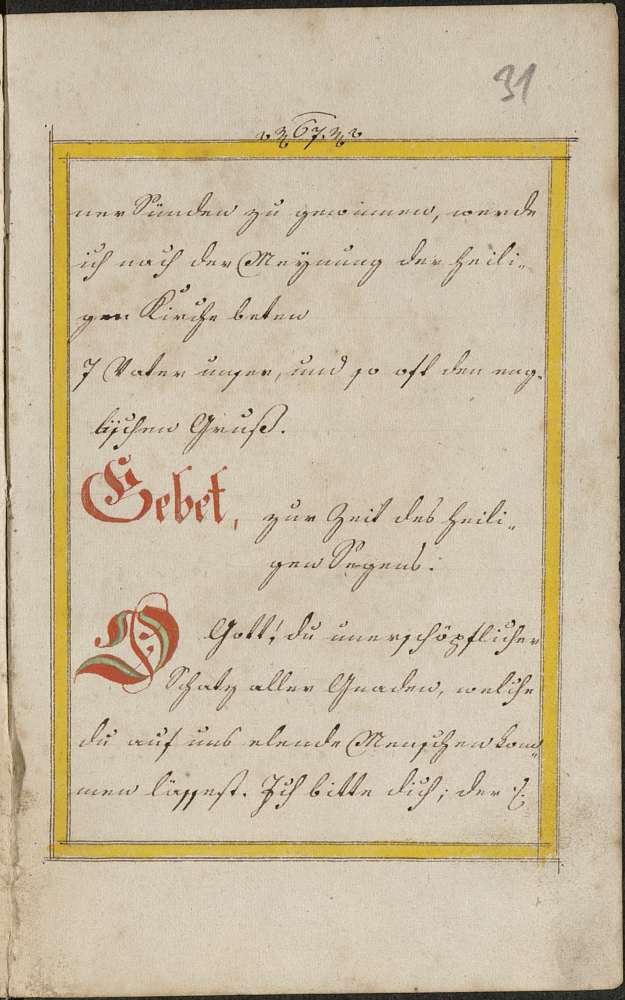 31
67.
ner Sünden zu gewinnen, werde
ich nach der Meÿnung der heili„
gen Kirche beten
7 Vater unser, und so oft den eng„
lischen Gruß.
Gebet, zur Zeit des heili„
gen Segens.
O Gott! du unerschöpflicher
Schatz aller Gnaden, welche
du auf uns elende Menschen kom„
men lässest. Ich bitte dich; der